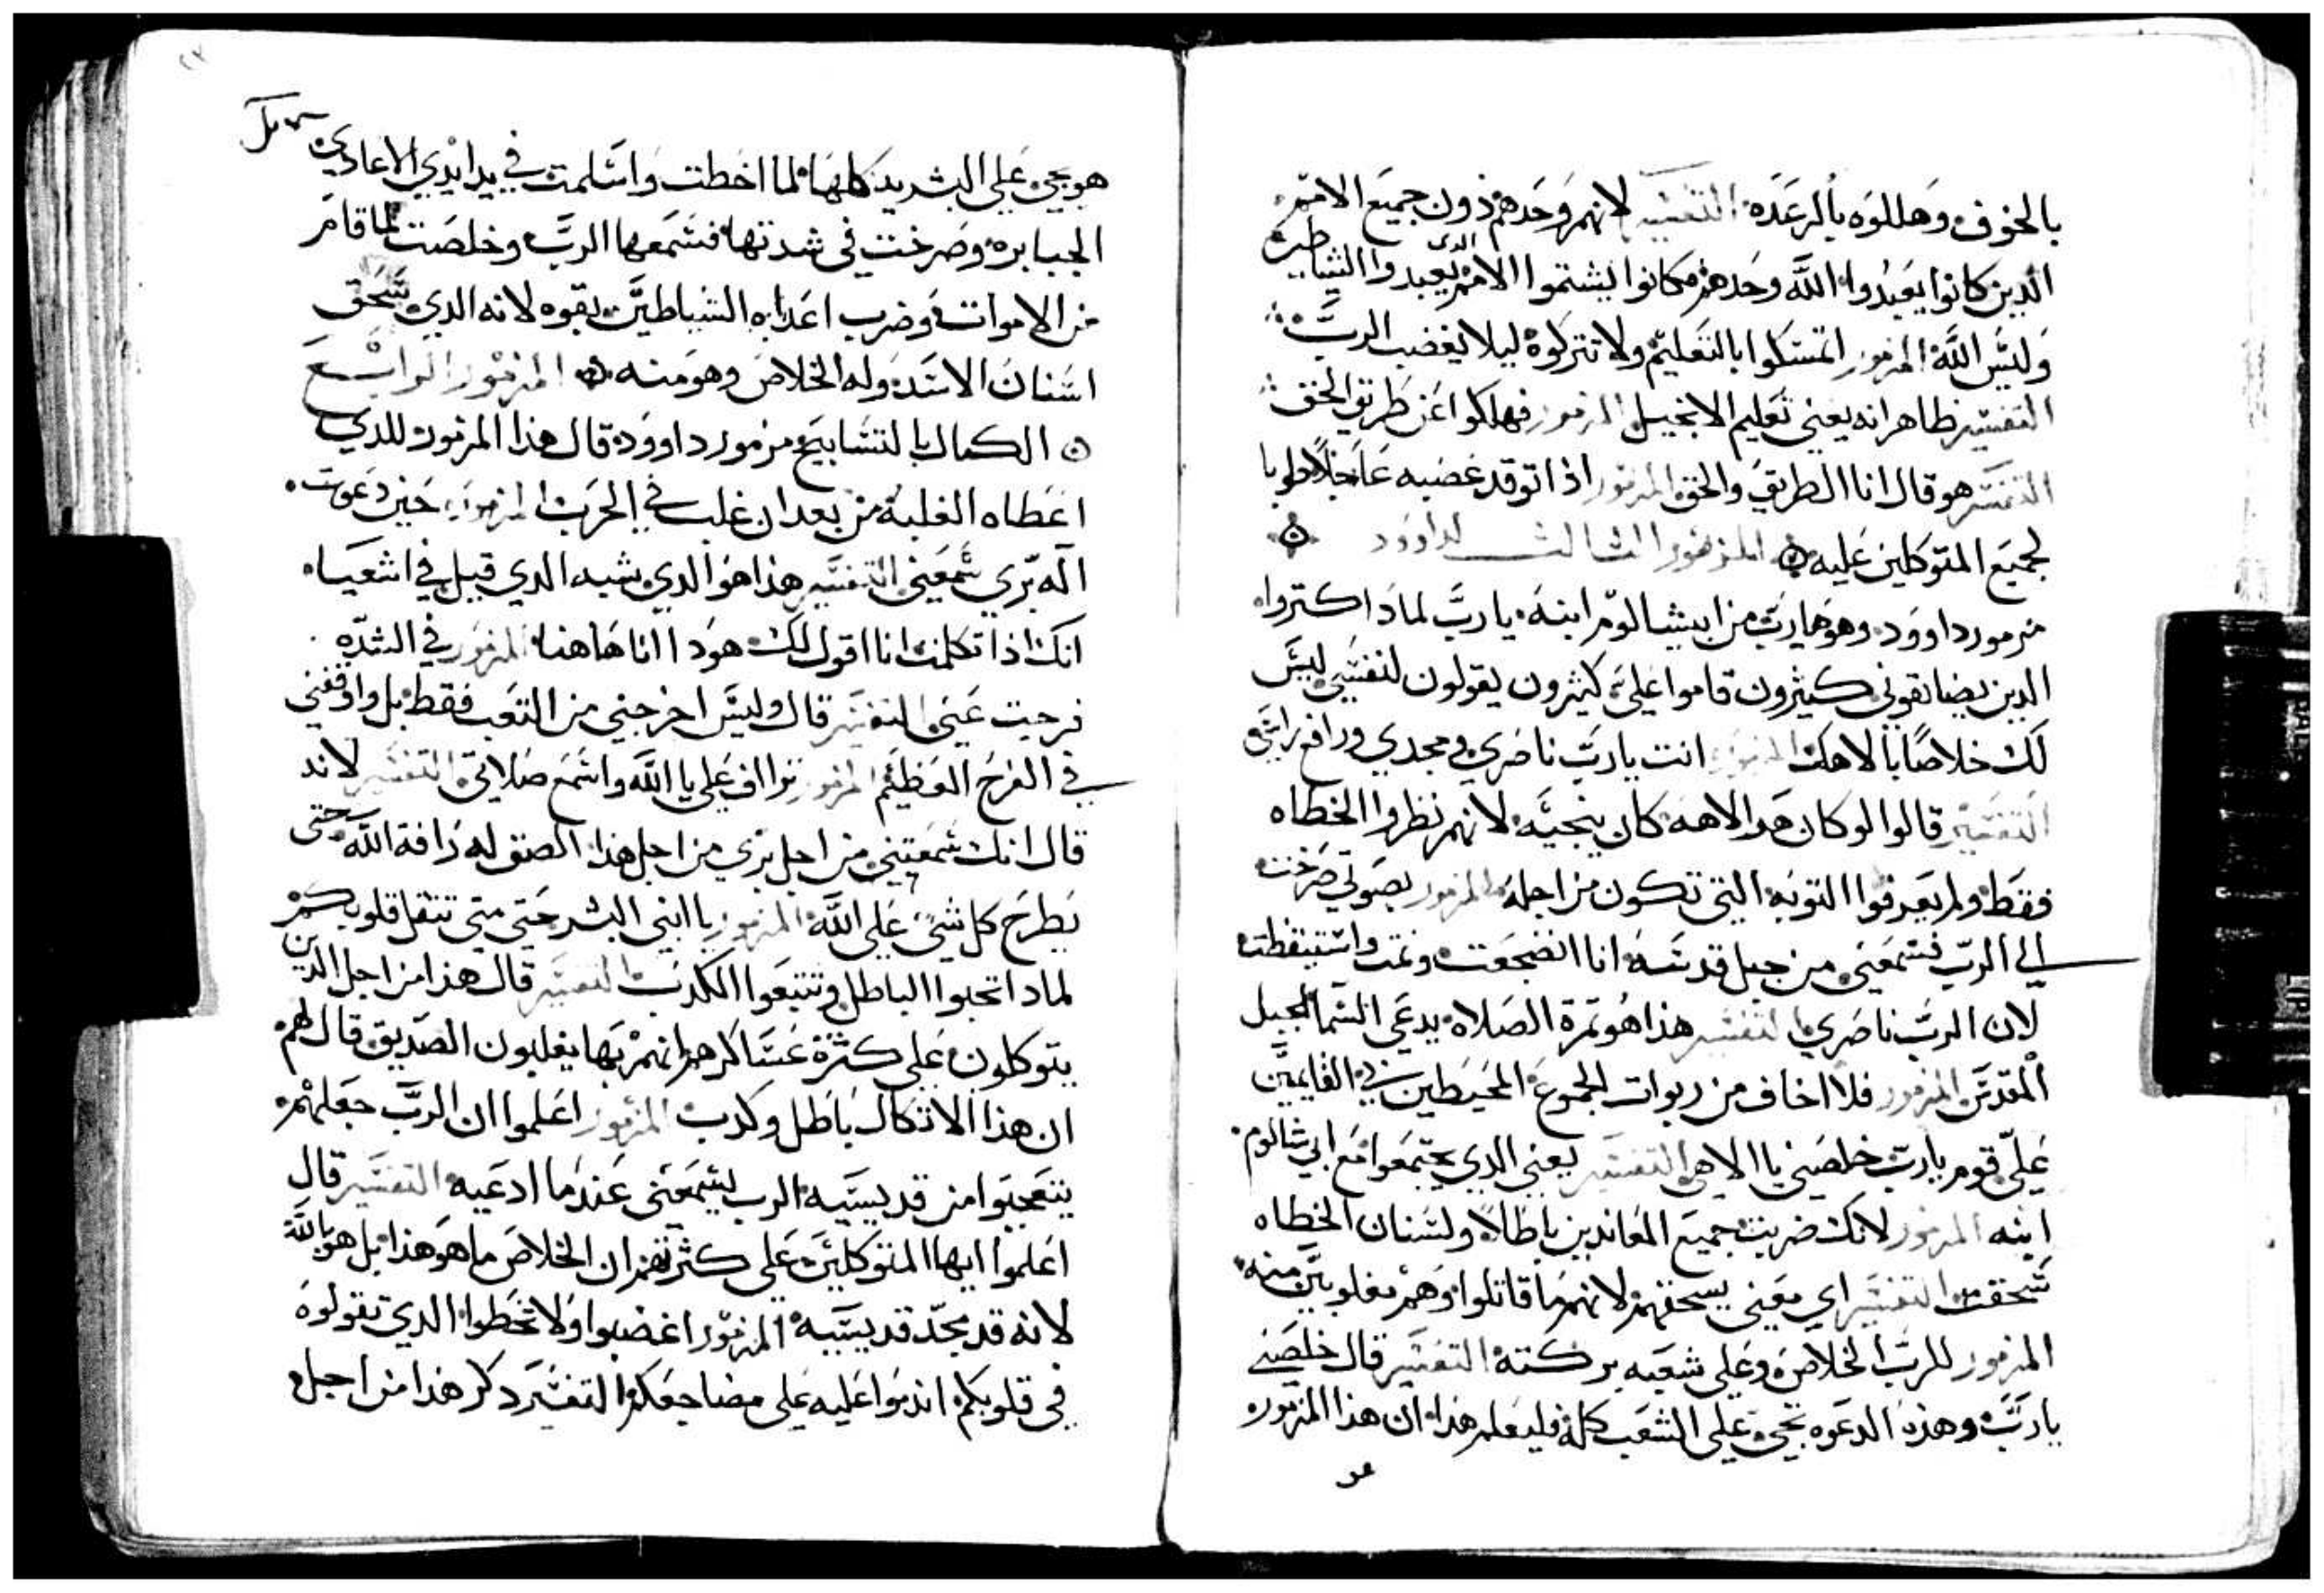 بالخوف وهللوه بالرعده التفسير لانهم وحدهم دون جميع الامم
الدين كانوا يعبدوا الله وحدهم كانوا يشتموا الامم الدى يعبدوا الشياطين
وليس الله المزمور اتمسكوا بالتعليم ولا تتركوه ليلا يغضب الرب
التفسير ظاهر انه يعني تعليم الانجيل المزمور فهلكوا عن طريق الحق
التفسير هو قال انا الطريق والحق المزمور اذا توقد غضبه عاجلاً طوبا
لجميع المتوكلين عليه المزمور الثالث لداوود
مزمور داوود وهو هارب من ابيشالوم ابنه يا رب لمادا كتروا
الدين يضايقوني كثيرون قاموا علي كثيرون يقولون لنفسي ليس
لك خلاصًا بالاهك المزمور انت يارب ناصري ومجدي ورافع راسي
التفسير قالوا لو كان هو الاهه كان ينجيه لانهم نظروا الخطاه
فقط ولم يعرفوا التوبه التي تكون من اجله المزمور بصوتي صرخت
الي الرب فسمعني من جبل قدسه انا انضجعت ونمت واستيقظت
لان الرب ناصري التفسير هذا هو تمرة الصلاه يدعي السما الجبل
المقدس المزمور فلا اخاف من ربوات الجموع المحيطين في القايمين
علي قوم يارب خلصني يا الاهي التفسير يعني الدي يجتمعوا مع ابيشالوم
ابنه المزمور لانك ضربت جميع المعاندين باطالاً ولسنان الخطاه
سحقت التفسير اي معني يسحقهم لانهم ما قاتلوا وهم مغلوبين منه
المزمور للرب الخلاص وعلي شعبه بركته التفسير قال خلصني
يارب وهذه الدعوه تجي علي الشعب كله فليعلم هذا ان هذا المزمور
هو يجي علي البشريه كلها لما اخطت واسلمت في يد ايدي الاعادي
الجبابره وصرخت في شدتها فسمعها الرب وخلصت لما قام
من الاموات وضرب اعداه الشياطين بقوه لانه الدي سحق
اسنان الاسد وله الخلاص وهو منه المزمور الرابع
الكمال بالتسابيح مزمور داوود قال هذا المزمور للدي
اعطاه الغلبه من بعد ان غلب في الحرب المزمور حين دعوت
اله بري سمعني التفسير هذا هو الدي يشبه الدي قيل في اشعياه
انك اذا تكلمت انا اقول لك هودا انا هاهنا المزمور في الشده
فرجت عني التفسير قال وليس اخرجني من التعب فقط بل واوقفني
في الفرح العظيم المزمور تراف علي يا الله واسمع صلاتي التفسير لانه
قال انك سمعتني من اجل بري من اجل هذا الصق له رافة الله حتى
يطرح كل شي علي الله المزمور يا ابني البشر حتي متي تتقل قلوبكم
لمادا تحبوا الباطل وتتبعوا الكدب التفسير قال هذا من اجل الدين
يتوكلون علي كثرة عساكرهم انهم بها يغلبون الصديق قال لهم
ان هذا الاتكال باطل وكدب المزمور اعلموا ان الرب جعلهم
يتعجبوا من قديسيه الرب يسمعني عندما ادعيه التفسير قال
اعلموا ايها المتوكلين علي كثرتهم ان الخلاص ما هو هذا بل هو بالله
لانه قد مجد قديسيه المزمور اغضبوا ولا تخطوا الدي تقولوه
في قلوبكم اندموا عليه علي مضاجعكم التفسير دكر هذا من اجل